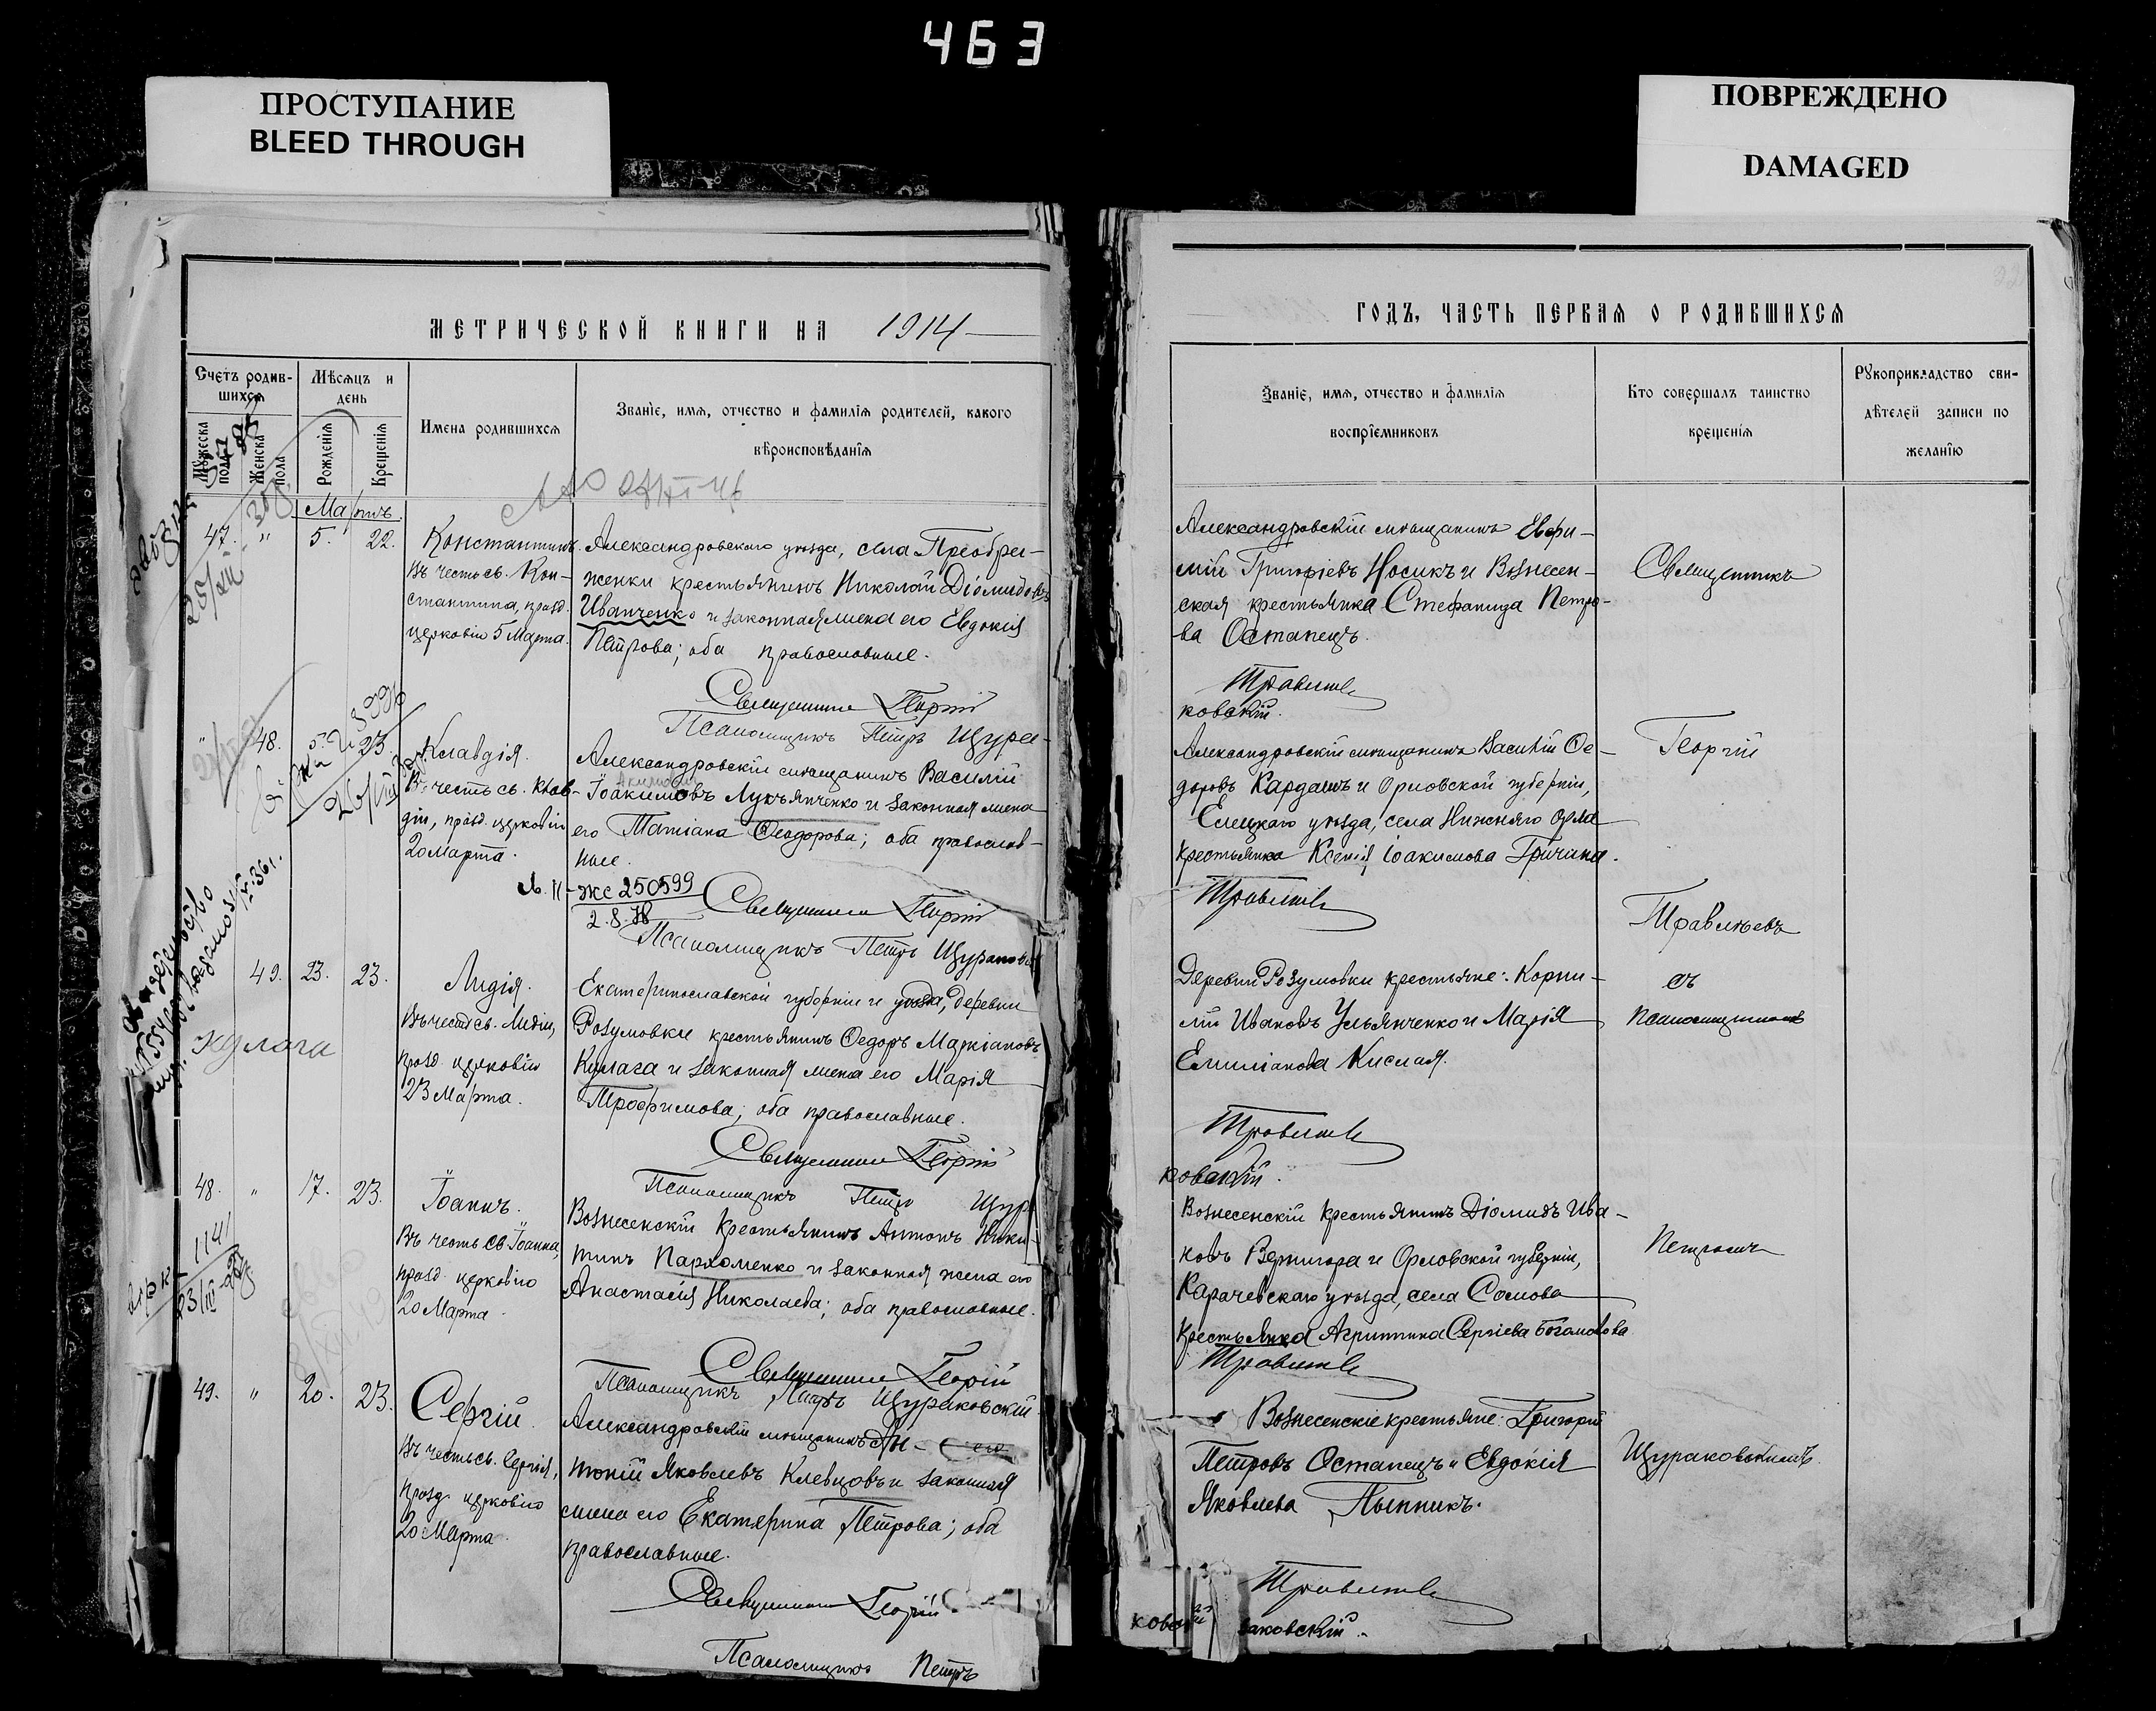 463
ПРОСТУПАНИЕ
BLEED THROUGH
ПОВРЕЖДЕНО
DAMAGED
МЕТРИЧЕСКОЙ КНИГИ НА 1914
Счетъ родив-
шихся
Мужеска
пола
Женска
пола
Мѣсяцъ и
день
Рожденія
Крещенія
Имена родившихся
Званіе, имя, отчество и фамилія родителей, какого
вѣроисповѣданія
Мартъ.
47. " 5. 22.
Константинъ.
Въ честь св. Кон-
стантина, празд.
церковію 5 Марта.
Александровскаго уѣзда, села Преобра-
женки крестьянинъ Николай Діомидовъ
Иванченко и законная жена его Евдокія
Петрова; оба православные.
Священникъ Георгій
Псаломщикъ Петръ Щура-
" 48. 5. 23.
Клавдія.
Въ честь св. Клав-
діи, празд. церковію
20 Марта.
Александровскій мѣщанинъ Василій
Іоакимовъ Лукьянченко и законная жена
его Татіана Ѳеодорова; оба православ-
ные.
250599
2.8.
Священникъ Георгій
Псаломщикъ Петръ Щураков
49. 23. 23.
Лидія.
Въ честь св. Лидіи,
празд. церковію
23 Марта.
Екатеринославской губерніи и уѣзда, деревни
Розумовки крестьянинъ Ѳедоръ Маркіановъ
Кулага и законная жена его Марія
Трофимова; оба православные.
Священникъ Георгій
Псаломщикъ Петръ Щур
48. " 17. 23.
Іоаннъ.
Въ честь св. Іоанна,
празд. церковію
20 Марта.
Вознесенскій крестьянинъ Антонъ Ники-
тинъ Пархоменко и законная жена его
Анастасія Николаева; оба православные.
Священникъ Георгій
Псаломщикъ Петръ Щураковскій
49. " 20. 23.
Сергій.
Въ честь св. Сергія,
празд. церковію
20 Марта.
Александровскій мѣщанинъ Ан-
тоній Яковлевъ Клевцовъ и законная
жена его Екатерина Петрова; оба
православные.
Священникъ Георгій
Псаломщикъ Петръ
ГОДЪ, ЧАСТЬ ПЕРВАЯ О РОДИВШИХСЯ
Званіе, имя, отчество и фамилія
воспріемниковъ
Кто совершалъ таинство
крещенія
Рукоприкладство сви-
дѣтелей записи по
желанію
Александровскій мѣщанинъ Евфи-
мій Григоріевъ Носикъ и Вознесен-
ская крестьянка Стефанида Петро-
ва Остапецъ.
Травлѣевъ
ковскій.
Александровскій мѣщанинъ Василій Ѳе-
доровъ Кардашъ и Орловской губерніи,
Елецкаго уѣзда, села Нижняго
крестьянка Ксенія Іоакимова Гричина.
Травлѣевъ
Деревни Розумовки крестьяне: Корни-
лій Ивановъ Ульянченко и Марія
Емиліанова Кислая.
Травлѣевъ
ковскій.
Вознесенскій крестьянинъ Діомидъ Ива-
новъ Вернигора и Орловской губерніи,
Карачевскаго уѣзда, села Сомова
крестьянка Агриппина Сергіева Богомолова
Травлѣевъ
Вознесенскіе крестьяне: Григорій
Петровъ Остапецъ и Евдокія
Яковлева
Травлѣевъ
ковскій
Священникъ
Георгій
Травлѣевъ
съ
Псаломщикомъ
Петромъ
Щураковскимъ.